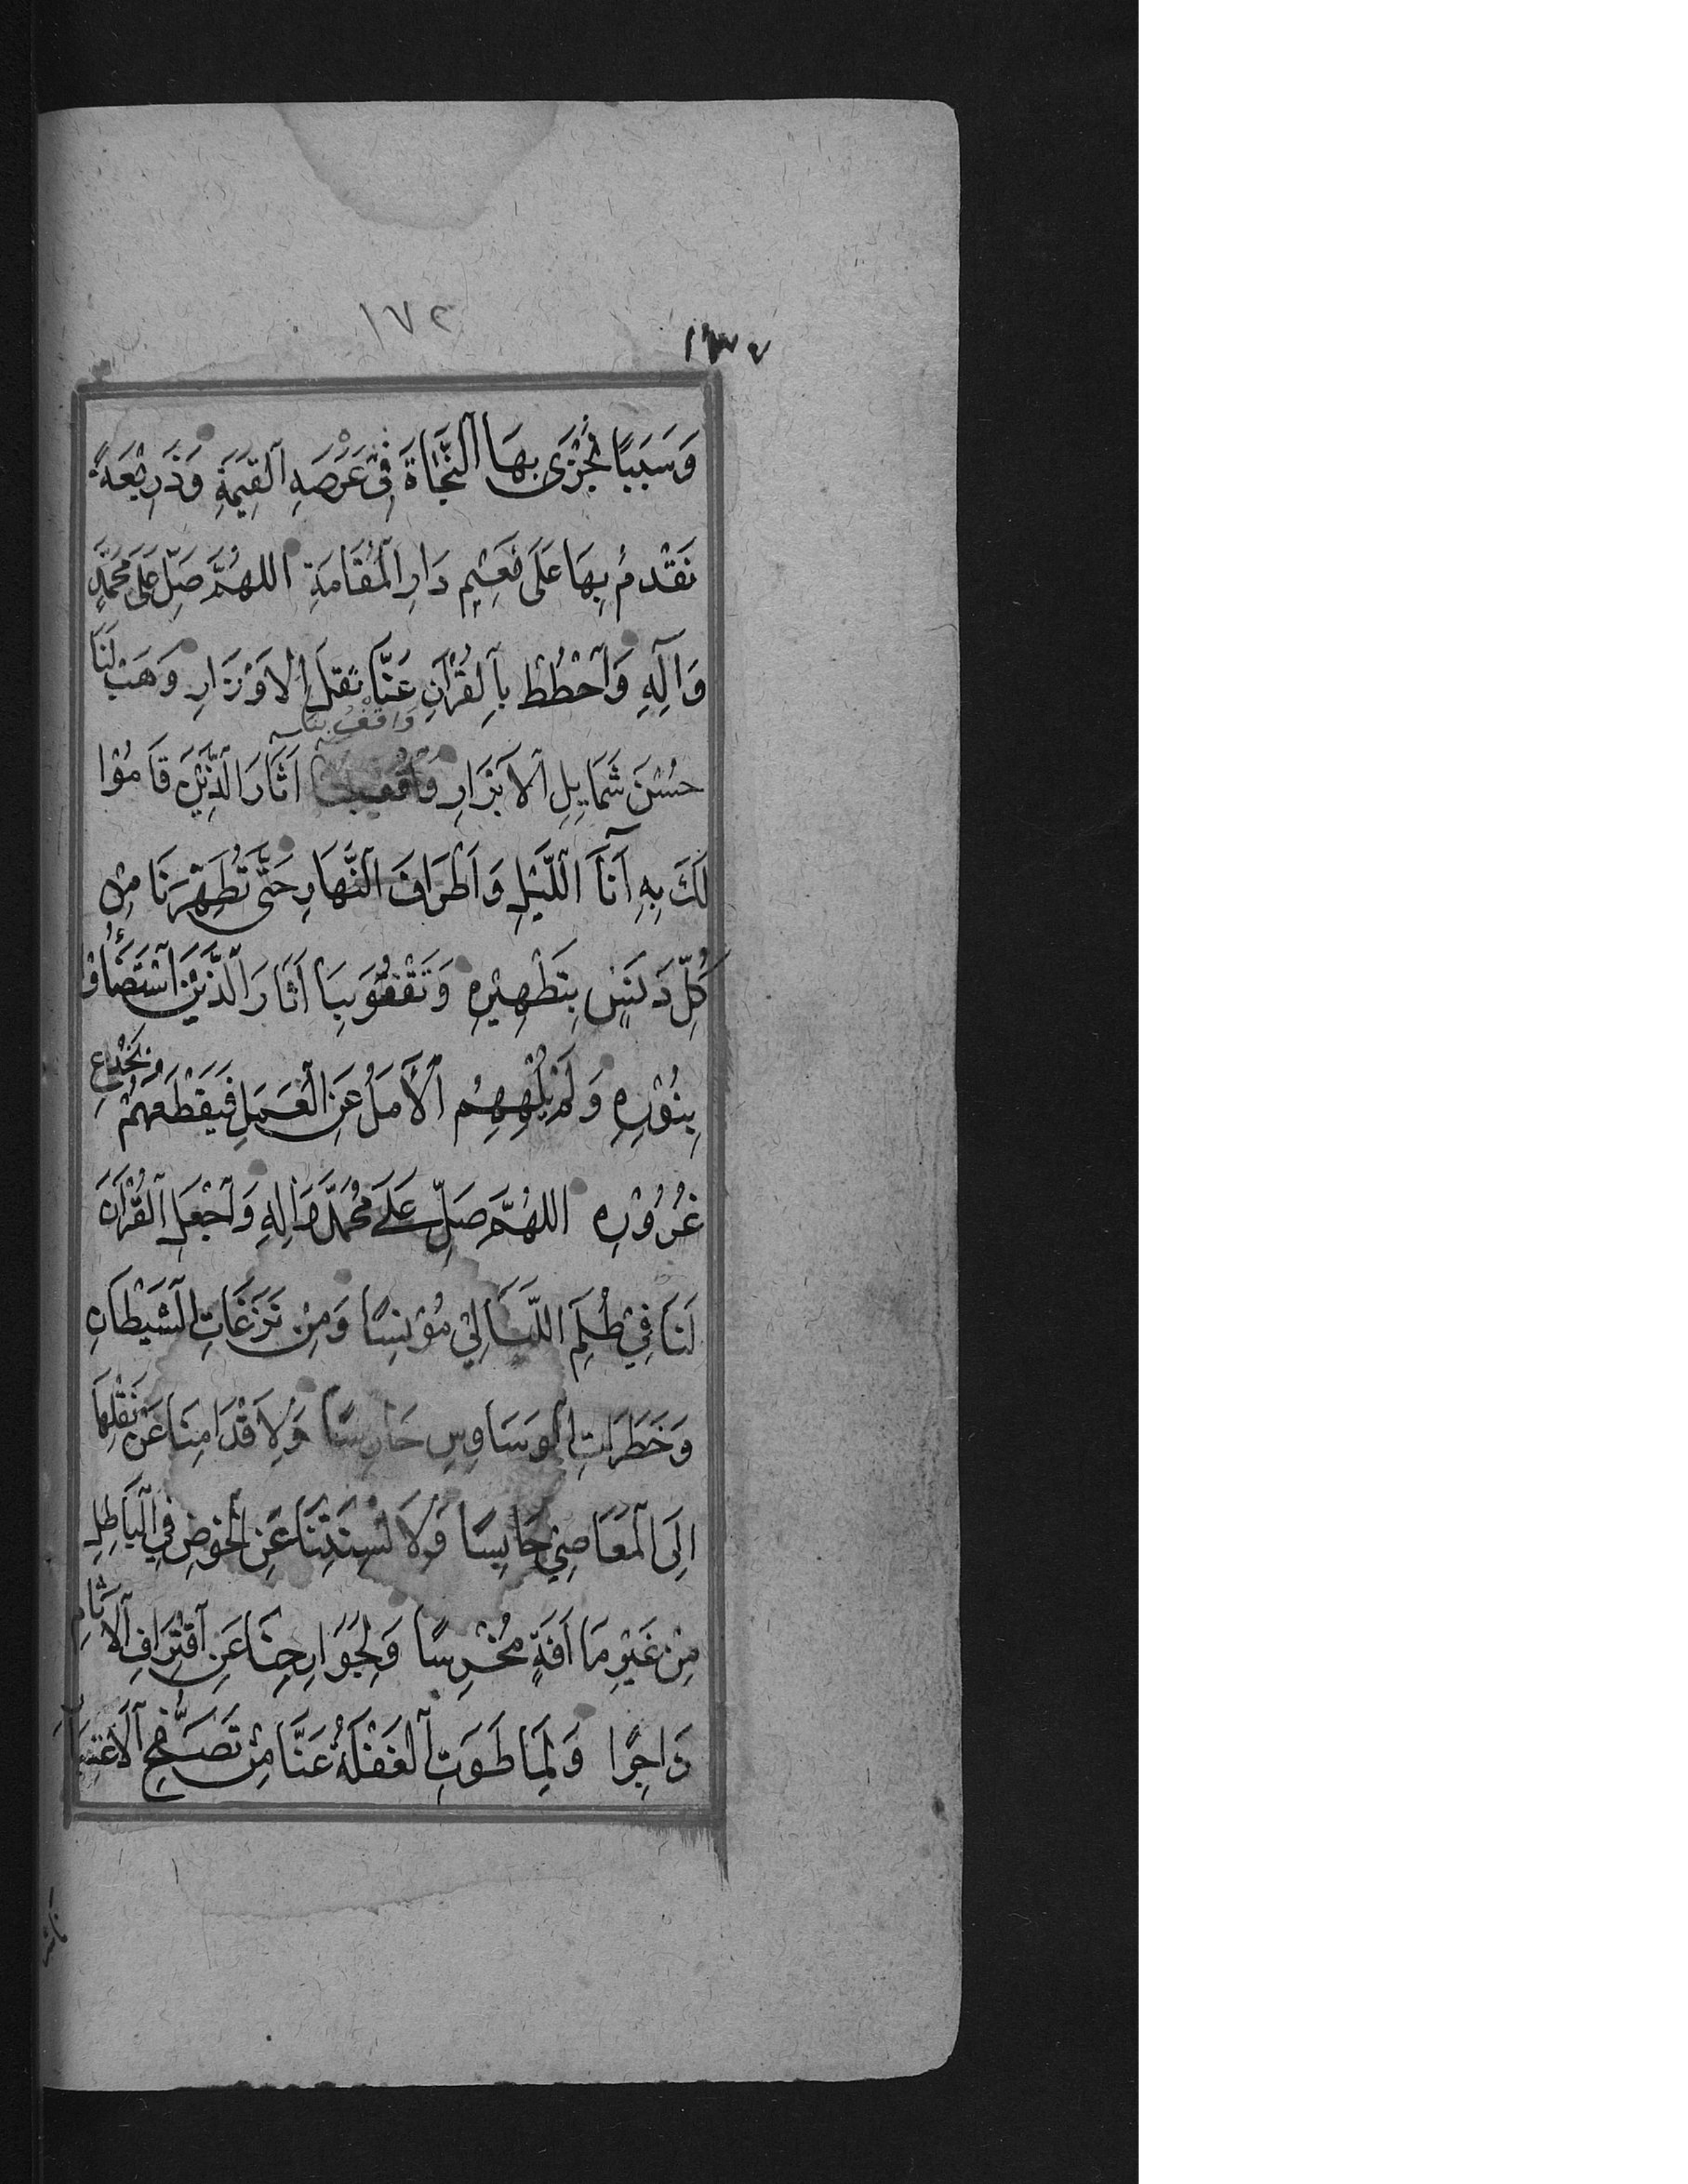 ١٧٢
١٣٧
وَسَبَبًا نُجْزَى بِهَا النَّجَاةَ فِي عَرْصَةِ الْقِيمَةِ وَذَرِيْعَةً
نَقْدمُ بِهَا عَلَى نَعِيْمِ دَارِ الْمُقَامَةِ اللهُمَّ صَلِّ عَلَى مُحَمَّدٍ
وَآلِهِ وَاحْطُطْ بِالْقُرْآنِ عَنَّا ثقلَ الْاَوْزَارِ وَهَبْ لَنَا
وَاقْفُ بنا
حُسْنَ شَمَايِلِ الْاَبْرَارِ اَثَارَ الَّذِيْنَ قَامُوْا
لَكَ بِهِ آنَآَ اللَّيْلِ وَاَطْرَافَ النَّهَارِ حَتَّى تُطَهِّرَنَا مِنْ
كُلِّ دَنَسٍ بِتَطْهِيْرِهِ وَتَقْفُوَ بِنَا اَثَارَ الَّذِيْنَ اسْتَضَاؤُا
بِنُوْرِهِ وَلَمْ يُلْهِهِمُ الْأَمَلُ عَنِ الْعَمَلِ فَيَقْطَعَهُمْ بِخُدَعِ
غُرُوْرِهِ اللهُمَّ صَلِّ عَلَى مُحَمَّدٍ وَاٰلِهِ وَاجْعَلِ الْقُرْآنَ
لَنَا فِيْ ظُلَمِ اللَّيَالِيْ مُوْنِسًا وَمِنْ نَزَغَاتِ الشَّيْطَانِ
وَخَطَرَاتِ الْوَسَاوِسِ حَارِسًا وَلِاَقْدَامِنَا عَنْ نَقْلِهَا
اِلَى الْمَعَاصِيْ حَابِسًا وَلِاَلْسِنَتِنَا عَنِ الْخَوْضِ فِي الْبَاطِلِ
مِنْ غَيْرِ مَا اَفَةٍ مُخْرِسًا وَلِجَوَارِحِنَا عَنِ اقْتِرَافِ الْاٰثَامِ
زَاجِرًا وَلِمَا طَوَتِ الْغَفْلَةُ عَنَّا مِنْ تَصَفُّحِ الْاِعْتِبَارِ